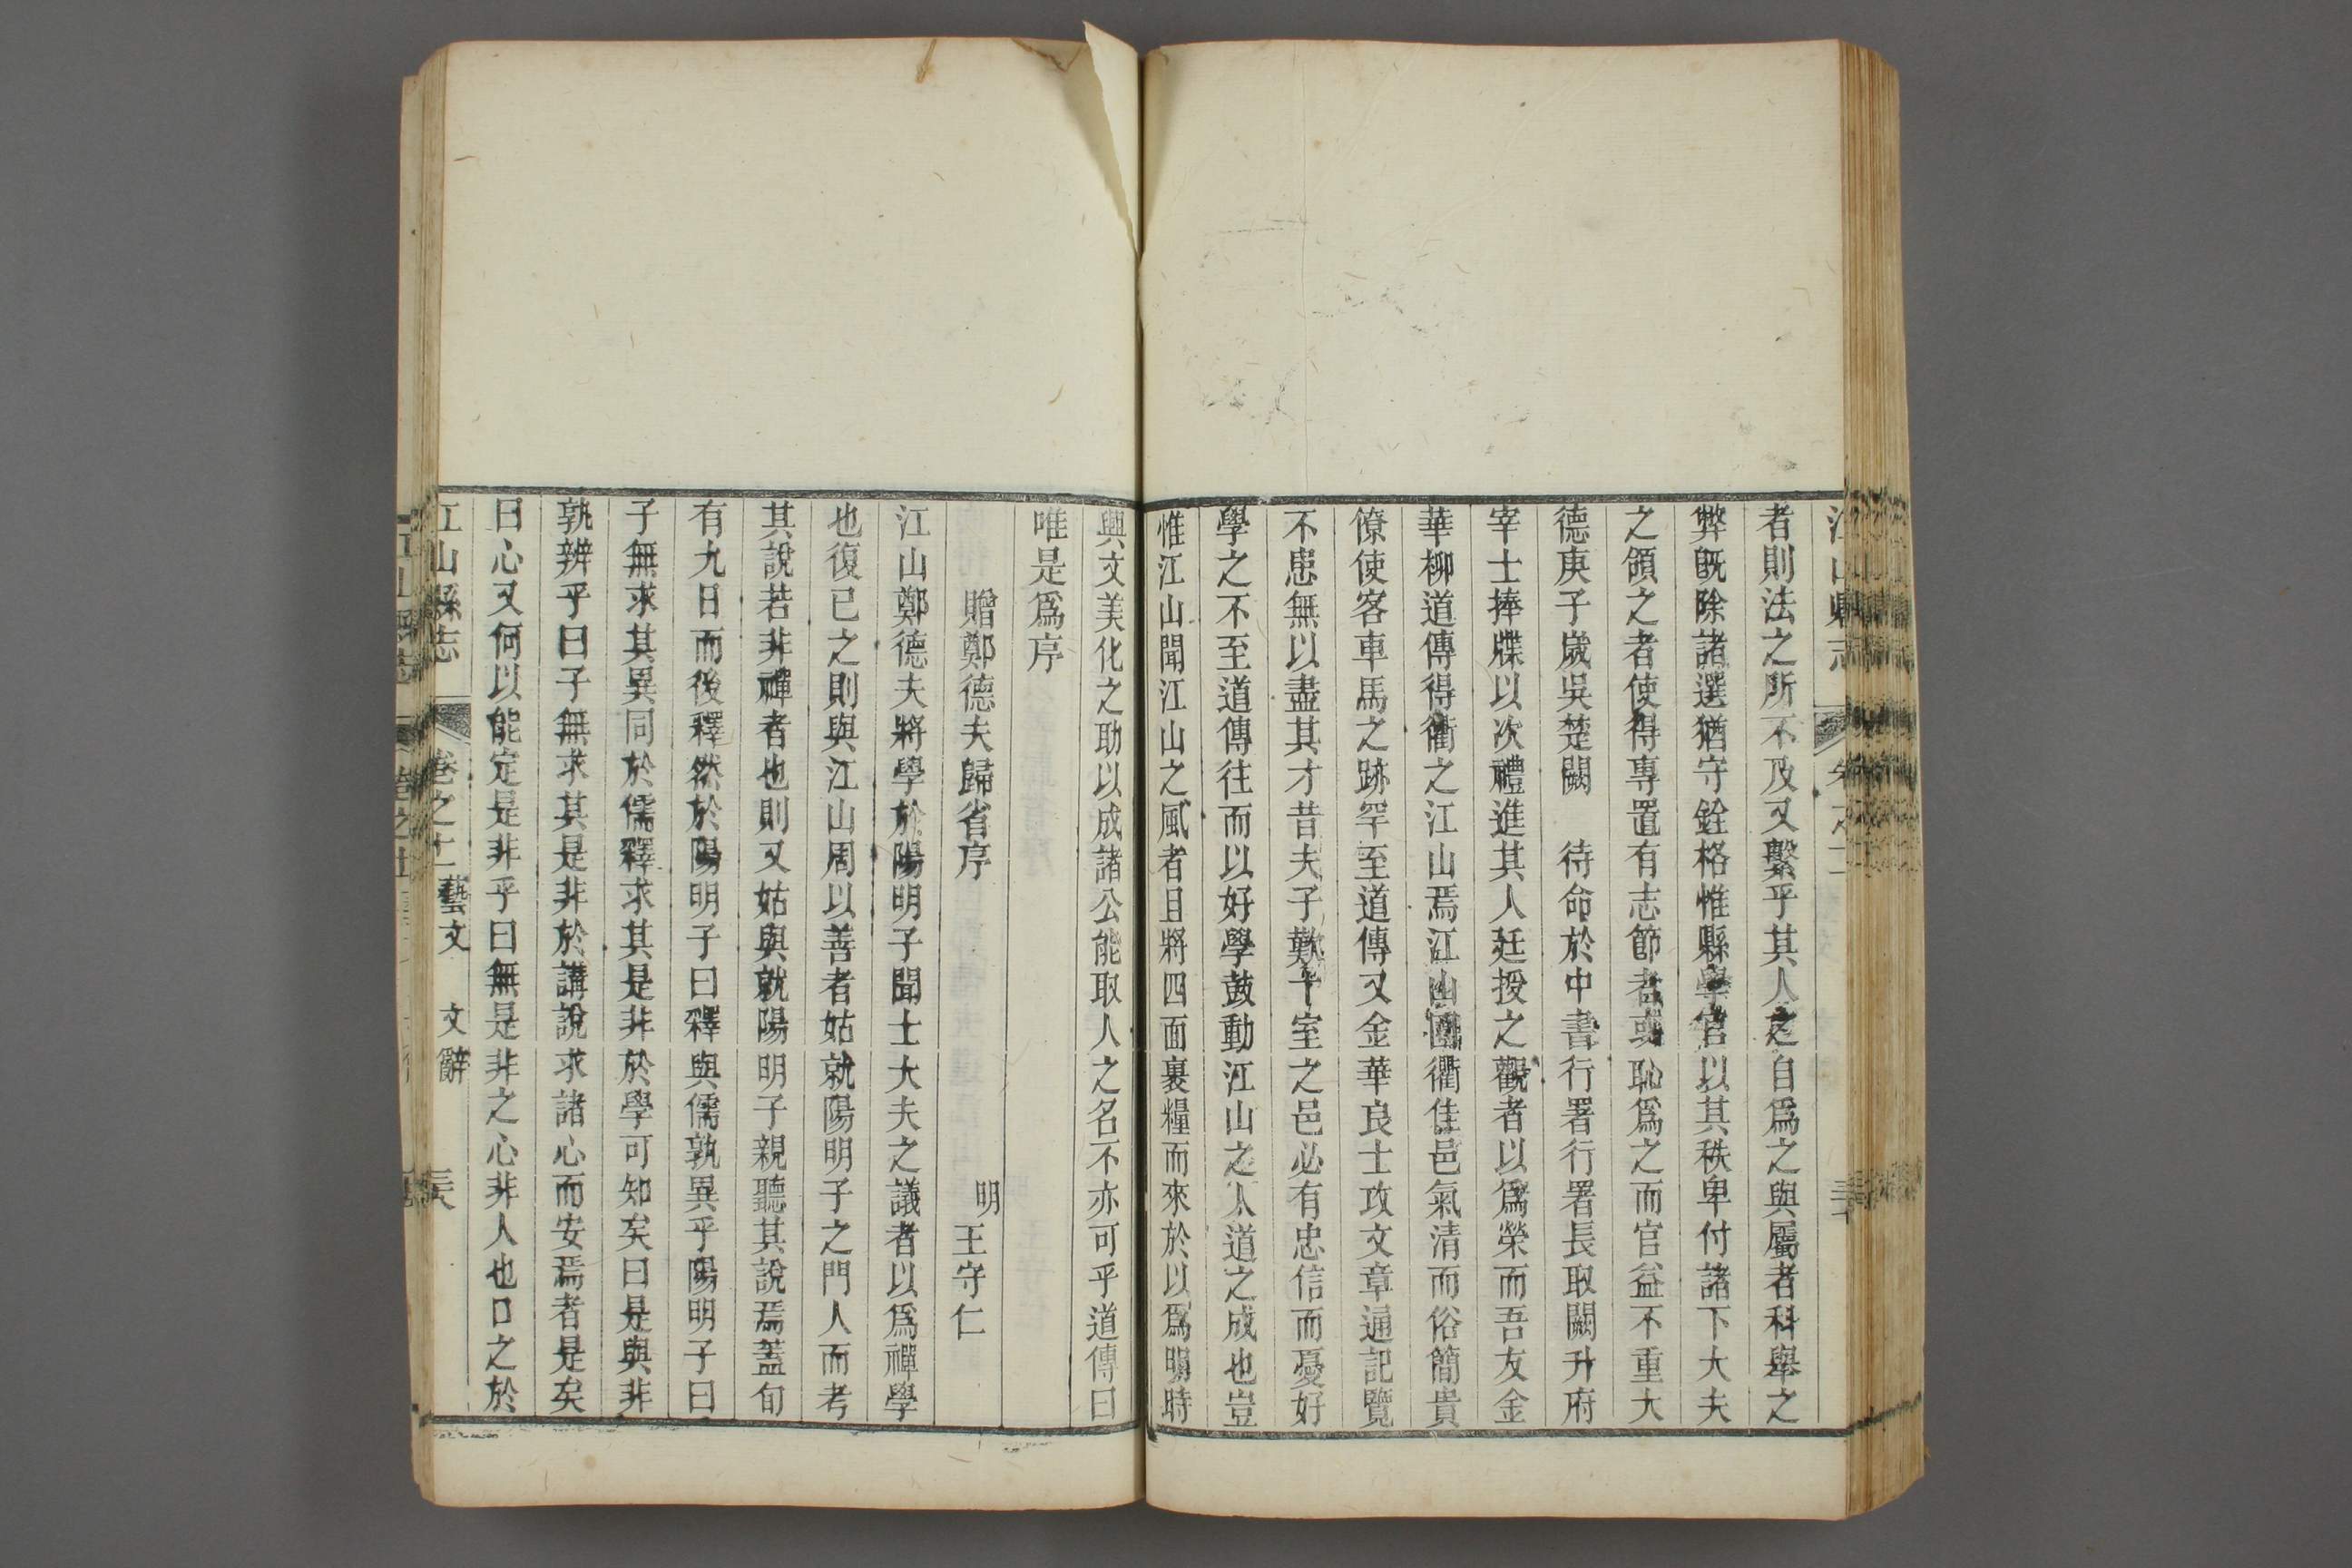 江山縣志
者則法之所不及又繫乎其人之自爲之與屬者科舉之
弊旣除諸選猶守銓格惟縣學官以其秩卑付諸下大夫
之領之者使得專置有志節者或恥爲之而官益不重大
德庚子歲吳楚闕　待命於中書行署行署長取闕升府
宰士捧牒以次禮進其人廷授之觀者以爲榮而吾友金
華柳道傳得衢之江山焉江山國衢佳邑氣清而俗簡貴
僚使客車馬之跡罕至道傳又金華良士攻文章通記覽
不患無以盡其才昔夫子歎十室之邑必有忠信而憂好
學之不至道傳往而以好學鼓動江山之人道之成也豈
惟江山聞江山之風者且將四面裹糧而來於以爲明時
興文美化之助以成諸公能取人之名不亦可乎道傳曰
唯是爲序
贈鄭德夫歸省序　明王守仁
江山鄭德夫將學於陽明子聞士大夫之議者以爲禪學
也復已之則與江山周以善者姑就陽明子之門人而考
其說若非禪者也則又姑與就陽明子親聽其說焉蓋旬
有九日而後釋然於陽明子曰釋與儒孰異乎陽明子曰
子無求其異同於儒釋求其是非於學可知矣曰是與非
孰辨乎曰子無求其是非於講說求諸心而安焉者是矣
曰心又何以能定是非乎曰無是非之心非人也口之於
江山縣志　卷之十一藝文　文辭